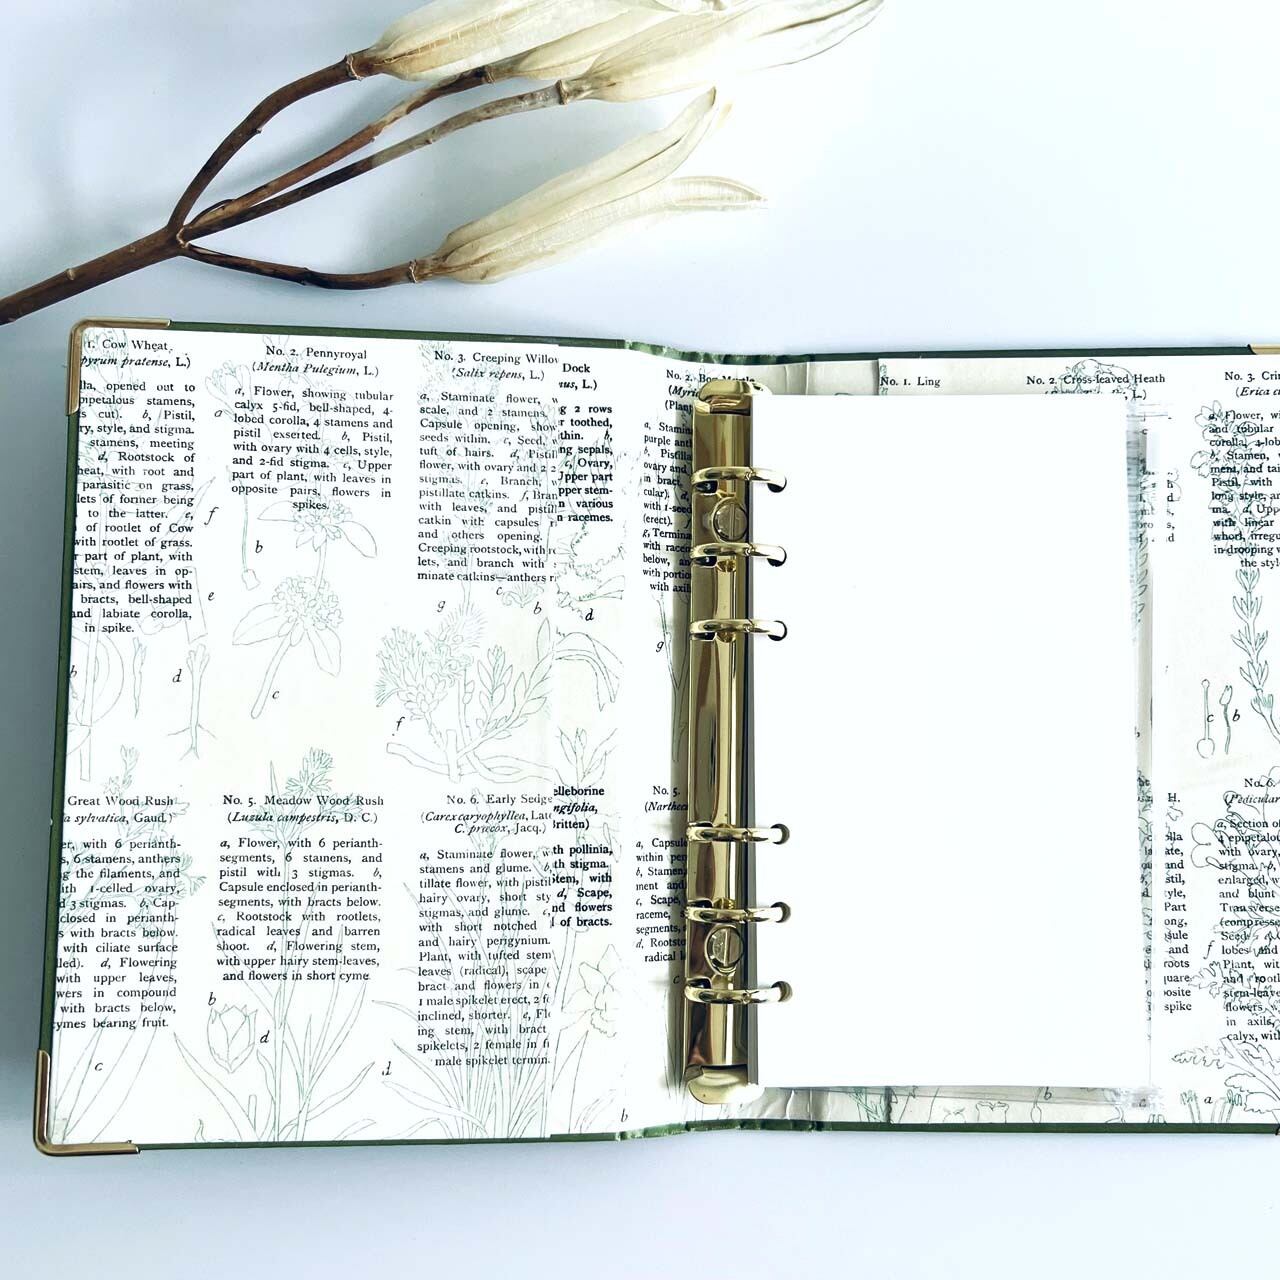 1. Cow Wheat
pyrum pratense, L.)
lla, opened out to
ipetalous stamens,
s cut). b, Pistil,
ry, style, and stigma.
stamens, meeting
d, Rootstock of
heat, with root and
parasitic on grass,
lets of former being
to the latter. e,
of rootlet of Cow
with rootlet of grass.
r part of plant, with
stem, leaves in op-
airs, and flowers with
bracts, bell-shaped
and labiate corolla,
in spike.
b
d
e
No. 2. Pennyroyal
(Mentha Pulegium, L.)
a, Flower, showing tubular
calyx 5-fid, bell-shaped, 4-
lobed corolla, 4 stamens and
pistil exserted. b, Pistil,
with ovary with 4 cells, style,
and 2-fid stigma. c, Upper
part of plant, with leaves in
opposite pairs, flowers in
spikes.
a
f
b
c
No. 3. Creeping Willow
(Salix repens, L.)
a, Staminate flower, w
scale, and 2 stamens.
Capsule opening, show
seeds within. c, Seed, w
tuft of hairs. d, Pistil
flower, with ovary and 2 2
stigmas. e, Branch, w
pistillate catkins. f, Bran
with leaves, and pistill
catkin with capsules
and others opening.
Creeping rootstock, with r
lets, and branch with
minate catkins—anthers r
c
b
g
f
Dock
us, L.)
g 2 rows
r toothed,
thin. b,
ng sepals,
c, Ovary,
Upper part
pper stem-
n various
n racemes.
d
No. 2. Bog Myrtle
(Myric
(Plant
a, Stamin
purple anth
b, Pistilla
ovary and
in bract.
cular). d,
with 1-seed
(erect). f
g, Termina
with racem
below, and
with portio
with axill
g
No. 1. Ling
No. 2. Cross-leaved Heath
No. 3. Crim
(Erica ci
a, Flower, wi
and tubular
corolla, 4-lob
b, Stamen, w
ment, and tai
Pistil, with
long style, an
ma. d, Upp
with linear
whorl, irregu
in drooping w
the style
c
b
Great Wood Rush
a sylvatica, Gaud.)
er, with 6 perianth-
s, 6 stamens, anthers
g the filaments, and
ith 1-celled ovary,
d 3 stigmas. b, Cap-
closed in perianth-
s with bracts below.
with ciliate surface
lled). d, Flowering
with upper leaves,
wers in compound
with bracts below,
ymes bearing fruit.
c
No. 5. Meadow Wood Rush
(Luzula campestris, D. C.)
a, Flower, with 6 perianth-
segments, 6 stamens, and
pistil with 3 stigmas. b,
Capsule enclosed in perianth-
segments, with bracts below.
c, Rootstock with rootlets,
radical leaves and barren
shoot. d, Flowering stem,
with upper hairy stem-leaves,
and flowers in short cyme.
b
d
d
No. 6. Early Sedge
(Carex caryophyllea, Late
C. præcox, Jacq.)
a, Staminate flower, w
stamens and glume. b,
tillate flower, with pistil
hairy ovary, short sty
stigmas, and glume. c,
with short notched
and hairy perigynium.
Plant, with tufted stem
leaves (radical), scape
bract and flowers in
1 male spikelet erect, 2 fe
inclined, shorter. e, Fl
ing stem, with bract
spikelets, 2 female in f
male spikelet termin
elleborine
ngifolia,
ritten)
th pollinia,
th stigma.
tem, with
d, Scape,
nd flowers
l of bracts.
b
No. 5.
(Narthec
a, Capsule
within per
b, Stamen
ment and
c, Scape,
raceme, s
segments,
d, Rootsto
radical l
c
H.
No. 6.
(Pedicular
a, Section of
4 epipetalou
with ovary,
stigma. b,
enlarged, w
and blunt
Transverse
(compresse
Seed.
lobes and
Plant, wit
and rootl
stem-leave
flowers,
in axils,
calyx, with
f
a
b
c